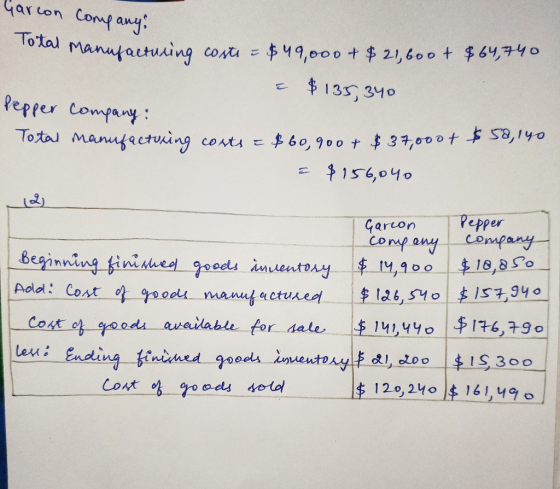 Garcon Company:
Total Manufacturing costs = $49,000 + $21,600 + $64,740
= $135,340
Pepper Company:
Total Manufacturing costs = $60,900 + $37,000 + $58,140
= $156,040
(2)
Garcon Company Pepper Company
Beginning finished goods inventory $14,900 $18,850
Add: Cost of goods manufactured $126,540 $157,940
Cost of goods available for sale $141,440 $176,790
Less: Ending finished goods inventory $21,200 $15,300
Cost of goods sold $120,240 $161,490